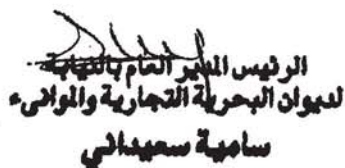 الرئيس المدير العام بالنيابة
لديوان البحرية التجارية والموانىء
سامية سعيداني